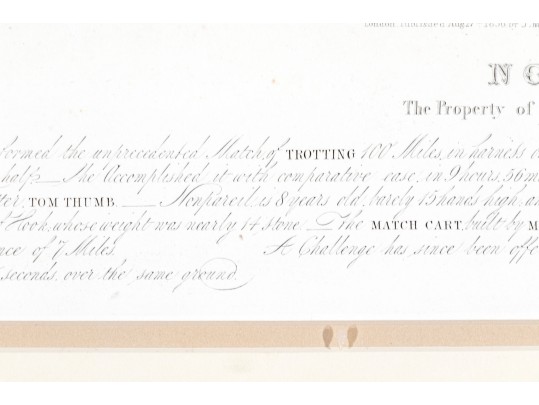 London Published Augst
N
The Property of
formed the unprecedented Match, of TROTTING 100 Miles, in harness
half. — He Accomplished it with comparative ease, in 9 hours, 56 m
ter, TOM THUMB. — Nonpareil is 8 years old, barely 15 hands high, an
Hook, whose weight was nearly 14 stone. — The MATCH CART, built by M
nce of 7 Miles. A Challenge has since been offe
seconds, over the same ground.